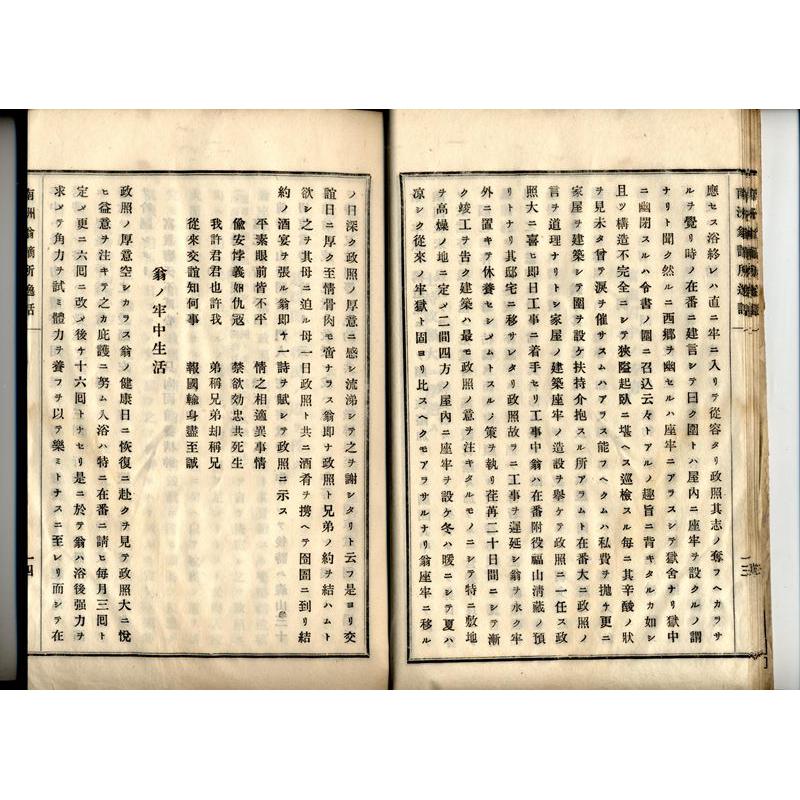 應セス浴終レハ直ニ牢ニ入リテ從容タリ政照其志ノ奪フヘカラサ
ルヲ覺リ時ノ在番ニ建言シテ曰ク圍トハ屋内ニ座牢ヲ設クルノ謂
ナリト聞ク然ルニ西郷ヲ幽セルハ座牢ニアラスシテ獄舎ナリ獄中
ニ幽閉スルハ令書ノ圍ニ召込云々トアルノ趣旨ニ背キタルカ如シ
且ツ構造不完全ニシテ狹隘起臥ニ堪ヘス巡檢スル毎ニ其辛酸ノ狀
ヲ見未タ曾テ淚ヲ催サスムハアラス能フヘクムハ私費ヲ抛ケ更ニ
家屋ヲ建築シテ圍ヲ設ケ扶持介抱スル所アラムト在番大ニ政照ノ
言ヲ道理ナリトシ家屋ノ建築座牢ノ造設ヲ擧ケテ政照ニ一任ス政
照大ニ喜ヒ即日工事ニ着手セリ工事中翁ハ在番附役福山清藏ノ預
リトナリ其邸宅ニ移サレタリ政照故ラニ工事ヲ遲延シ翁ヲ永ク牢
外ニ置キテ休養セシメムトスルノ策ヲ執リ荏苒二十日間ニシテ漸
ク竣工ヲ告ク建築ハ最モ政照ノ意ヲ注キタルモノニシテ特ニ敷地
ヲ高燥ノ地ニ定メ二間四方ノ屋内ニ座牢ヲ設ケ冬ハ暖ニシテ夏ハ
凉シク從來ノ牢獄ト固ヨリ比スヘクモアラサルナリ翁座牢ニ移ル
一三
ノ日深ク政照ノ厚意ニ感シ流涕シテ之ヲ謝シタリト云フ是ヨリ交
誼日ニ厚ク至情骨肉モ啻ナラス翁即ナ政照ト兄弟ノ約ヲ結ハムト
欲シ之ヲ其母ニ迫ル母一日政照ト共ニ酒肴ヲ携ヘテ囹圄ニ到リ結
約ノ酒宴ヲ張ル翁即ヤ一詩ヲ賦シテ政照ニ示ス
平素眼前皆不平 情之相適異事情
偸安悖義如仇冦 禁欲効忠共死生
我許君君也許我 弟稱兄弟却稱兄
從來交誼知何事 報國輸身盡至誠
翁ノ牢中生活
政照ノ厚意空シカラス翁ノ健康日ニ恢復ニ赴クヲ見テ政照大ニ悅
ヒ益意ヲ注キテ之カ庇護ニ努ム入浴ハ特ニ在番ニ請ヒ毎月三囘ト
定メ更ニ六囘ニ改メ後ケ十六囘トナセリ是ニ於テ翁ハ浴後强力ヲ
求メテ角力ヲ試ミ體力ヲ養フヲ以テ樂ミトナスニ至レリ而シテ在
南洲翁謫所逸話
一四